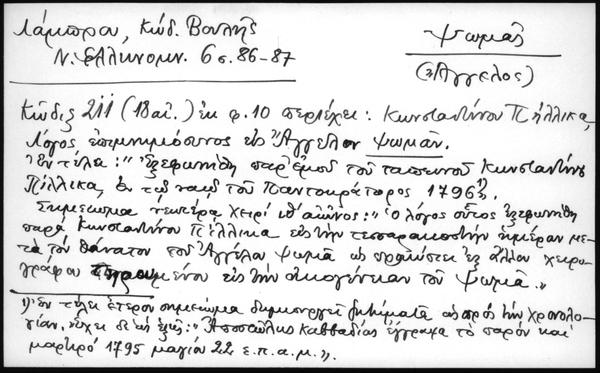 Λάμπρου, Κώδ. Βουλῆς
Ν. Ἑλληνομν. 6 σ. 86-87
Ψωμᾶς
(Ἄγγελος)
Κῶδιξ 211 (18 αἰ.) ἐν φ. 10 περιέχει: Κωνσταντίνου Πήλλικα,
Λόγος ἐπιμνημόσυνος εἰς Ἄγγελον Ψωμᾶν.
Ἐν τέλει: "Ἐξεφωνήθη παρ' ἐμοῦ τοῦ ταπεινοῦ Κωνσταντίνου
Πίλλικα, ἐν τῷ ναῷ τοῦ Παντοκράτορος 1796¹⁾.
Σημείωμα νεωτέρᾳ χειρὶ ιθ' αἰῶνος: "Ὁ λόγος οὗτος ἐξεφωνήθη
παρὰ Κωνσταντίνου Πήλλικα εἰς τὴν τεσσαρακοστὴν ἡμέραν με-
τὰ τὸν θάνατον τοῦ Ἀγγέλου Ψωμᾶ ὡς ὁρᾶται ἐξ ἄλλου χειρο-
γράφου εἰς τὴν οἰκογένειαν τοῦ Ψωμᾶ."
1) Ἐν τέλει ἕτερον σημείωμα δημιουργεῖ ζητήματα ὡς πρὸς τὴν χρονολο-
γίαν, ἔχει δὲ ὡς ἑξῆς: "Ἀσσαῦλης Καββαδίας ἔγραψα τὸ παρὸν καὶ
μαρτυρῶ 1795 μαγίου 22 ε.π.α.μ.".